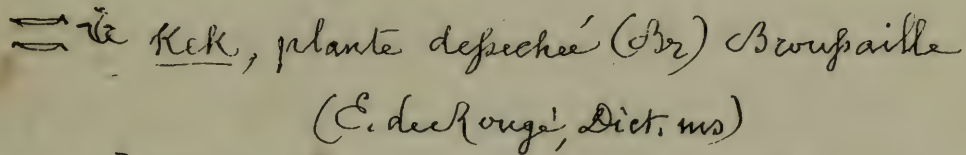 Kek, plante dessechée (Br) Broussaille
(E. de Rougé, Dict. ms)